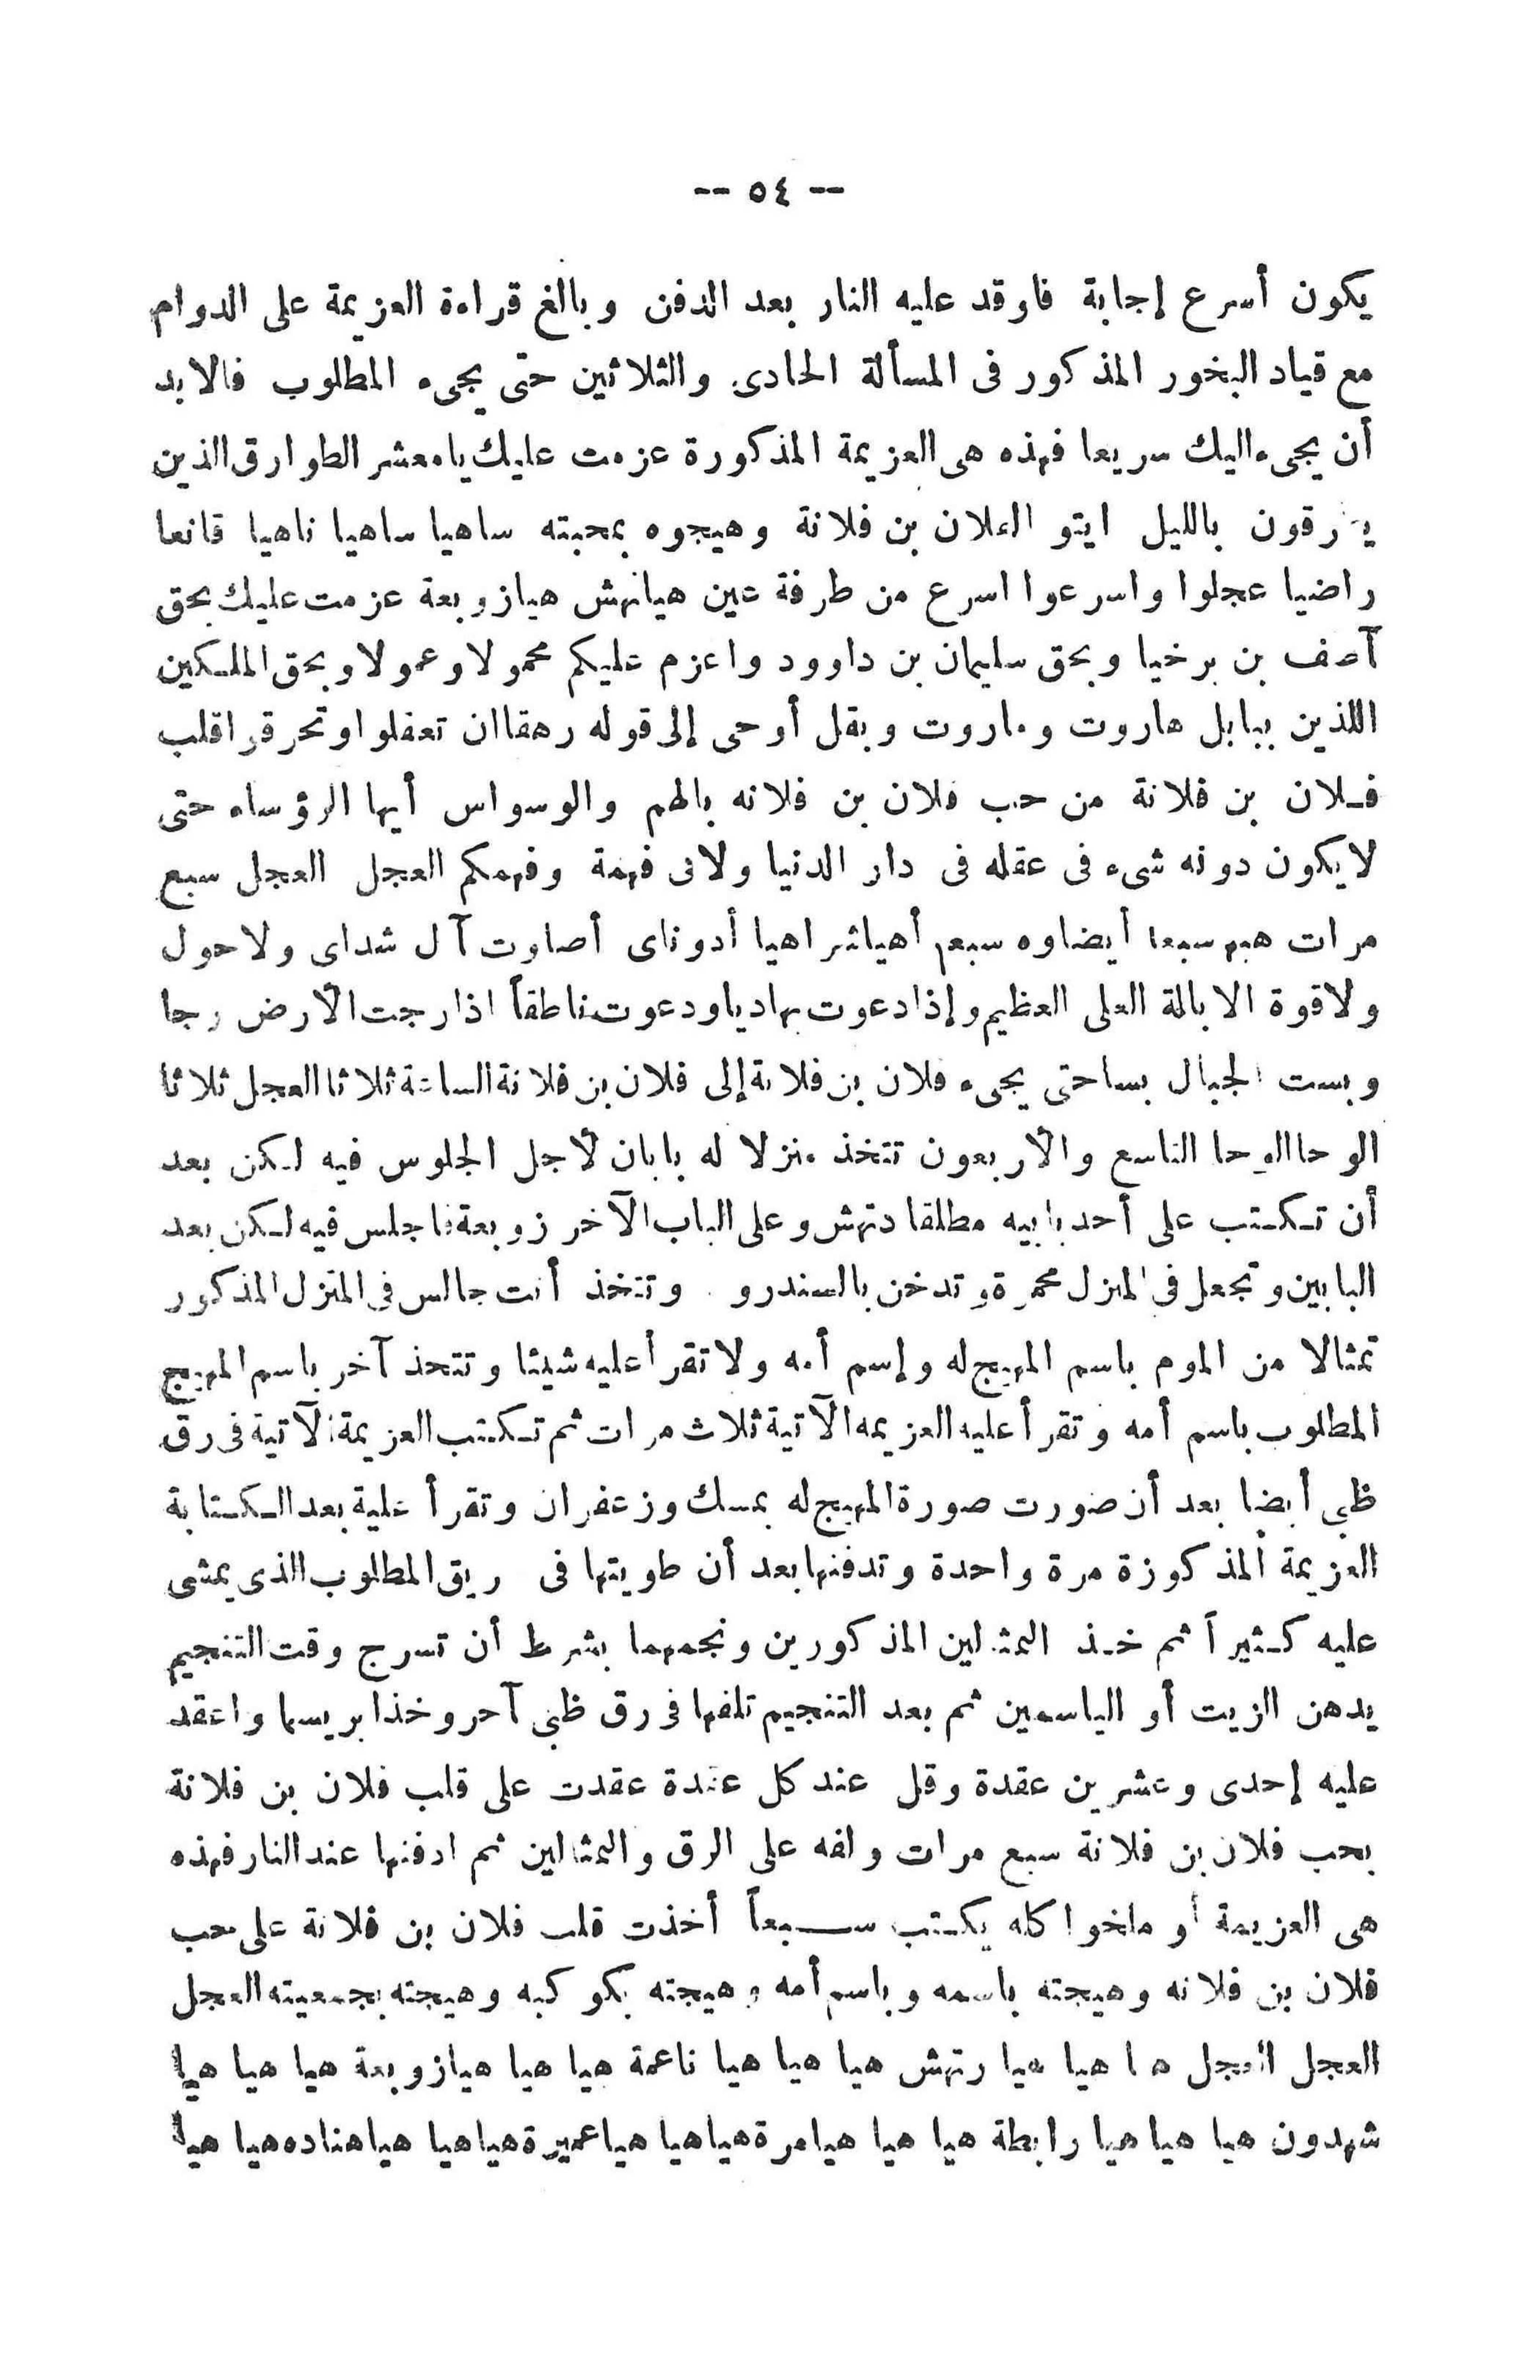 -- ٥٤ --
يكون أسرع إجابة فاوقد عليه النار بعد الدفن وبالغ قراءة العزيمة على الدوام
مع قياد البخور المذكور فى المسألة الحادى والثلاثين حتى يجىء المطلوب فالابد
أن يجىء اليك سريعا فهذه هى العزيمة المذكورة عزمت عليك يامعشر الطوارق الذين
بالليل ايتو بن فلانة وهيجوه بمحبته ساهيا ساهيا ناهيا قانعا
راضيا عجلوا واسرعوا اسرع من طرفة عين هيانهش هيازوبعة عزمت عليك بحق
آصف بن برخيا وبحق سليمان بن داوود واعزم عليكم محمولا وعمولا وبحق الملكين
اللذين ببابل هاروت وماروت وبقل أوحى إلى قوله رهقاان تعفلوا وتحرقوا قلب
فلان بن فلانة من حب فلان بن فلانه بالهم والوسواس أيها الرؤساء حتى
لايكون دونه شىء فى عقله فى دار الدنيا ولافى فهمة وفهمكم العجل العجل سبع
مرات سبعا أيضاوه سبعم أهياشراهيا أدوناى أصاوت آل شداى ولاحول
ولاقوة الابالة العلى العظيم وإذا دعوت بهادياودعوت ناطقاً اذارجت الأرض رجا
وبست الجبال بساحتى يجىء فلان بن فلانة إلى فلان بن فلانة الساعة ثلاثا العجل ثلاثا
الوحا الوحا التاسع والأربعون تتخذ منزلا له بابان لأجل الجلوس فيه لكن بعد
أن تكتب على أحد بابيه مطلقا دنهش وعلى الباب الآخر زوبعة فاجلس فيه لكن بعد
البابين وتجعل فى المنزل محمرة وتدخن بالسندرو وتتخذ أنت جالس فى المنزل المذكور
تمثالا من الموم باسم المهيج له وإسم أمه ولاتقرأ عليه شيئا وتتحذ آخر باسم المهيج
المطلوب باسم أمه وتقرأ عليه العزيمه الآتية ثلاث مرات ثم تكتب العزيمة الآتية فى رق
ظبى أيضا بعد أن صورت صورة المهيج له بمسك وزعفران وتقرأ علية بعد الكتابة
العزيمة المذكوزة مرة واحدة وتدفنها بعد أن طويتها فى ريق المطلوب الذى يمشى
عليه كثيراً ثم خذ التمثالين المذكورين ونجمهما بشرط أن تسرج وقت التنجيم
يدهن الزيت أو الياسمين ثم بعد التنجيم تلفها فى رق ظبى آحر وخذ ابريسما واعقد
عليه إحدى وعشرين عقدة وقل عند كل عقدة عقدت على قلب فلان بن فلانة
بحب فلان بن فلانة سبع مرات ولفه على الرق والتمثالين ثم ادفنها عند النار فهذه
هى العزيمة أو ملخوا كله يكتب سبعاً أخذت قلب فلان بن فلانة على حب
فلان بن فلانه وهيجته باسمه وباسم أمه وهيجته بكوكبه وهيجته بجمعيته العجل
العجل العجل هيا هيا رتهش هيا هيا هيا ناعمة هيا هيا هيازوبعة هيا هيا هيا
شهدون هيا هيا هيا رابطة هيا هيا هيامرة هياهيا هياعميرة هياهيا هياهناده هيا هيا